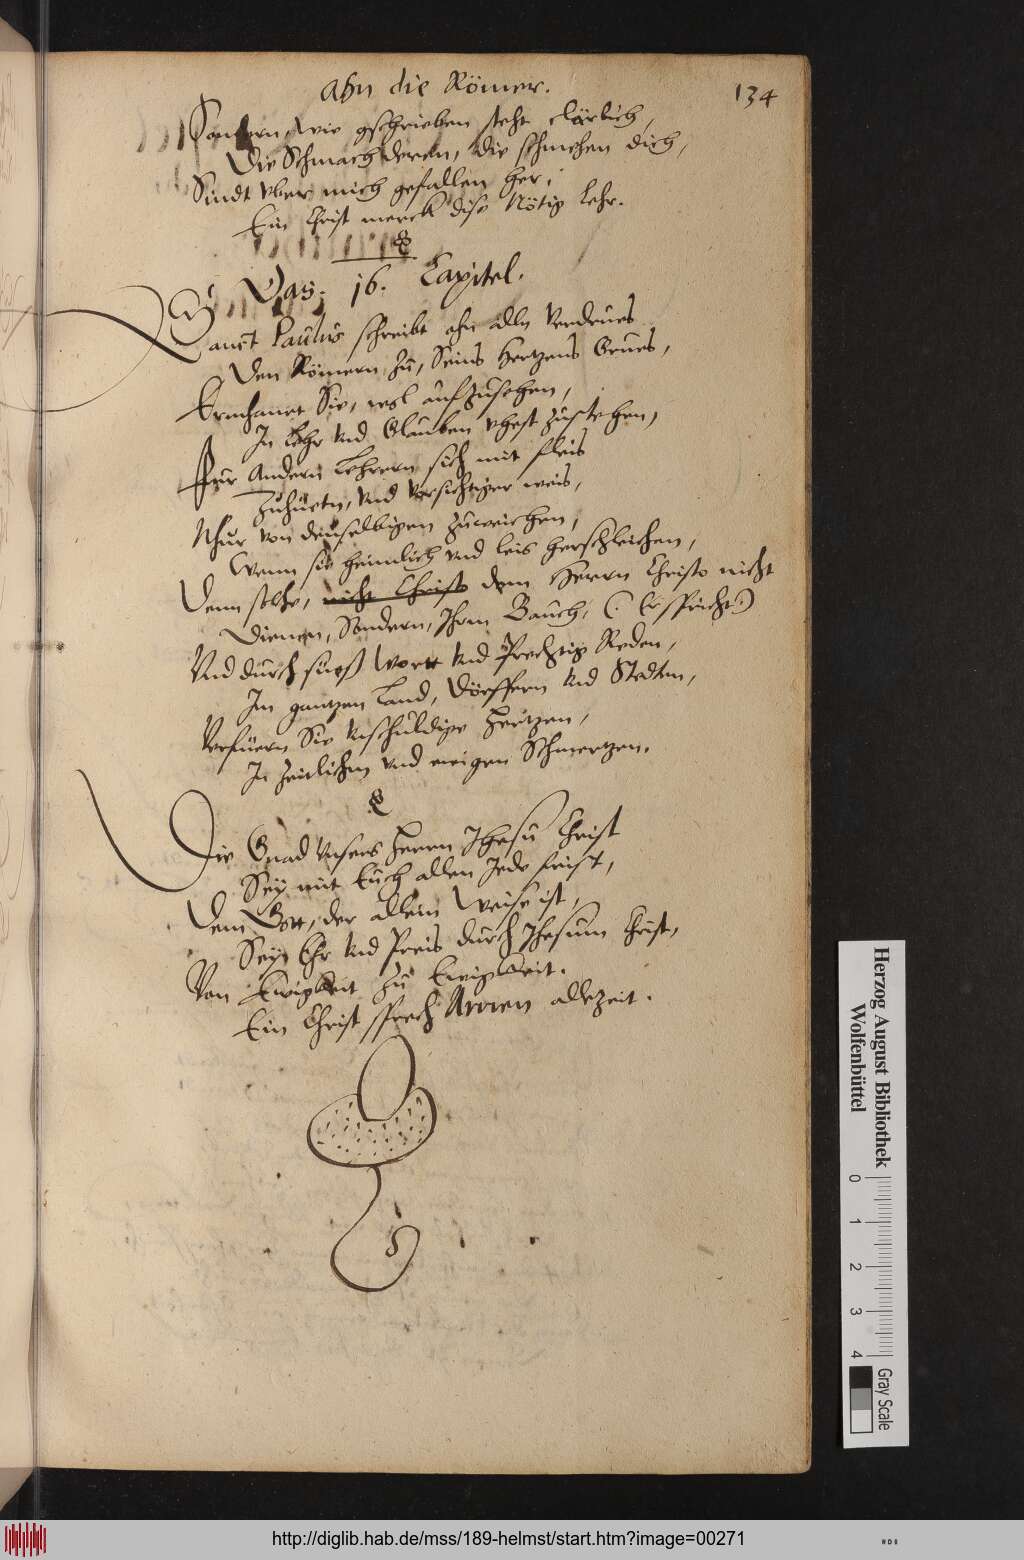 ahn die Römer.
134
Sondern, wie gschrieben steht clärlich,
Die Schmach deren, die schmehen dich,
Sindt vber mich gefallen her,
Ein Christ merck dise Nötig Lehr.
Das. 16. Capitel.
Sanct Paulus schreibt ohn alln Verdrues
Den Römern zu, Seins Hertzens Grues,
Ermhanet Sie, wol aufzusehen,
In Lehr vnd Glauben vhest zustehen,
Fur Andern Lehrern sich mit fleis
Zuhüetn, vnd versichtiger weis,
Nhur von denselbigen zuweichen,
Wenn sie heimlich vnd leis herschleichen,
Denn solche, nicht Christo dem Herrn Christo nicht
Dienen, Sondern, Ihrm Bauch, (: Er spricht :)
Vnd durch suess Wort vnd Prechtig Reden,
Im gantzen Land, Döerffern vnd Stedten,
Verfüern Sie vnschuldige Hertzen,
In zeitlichen vnd ewigen Schmertzen.
Die Gnad vnsers Herrn Jhesu Christ
Sey mit Euch allen Jede frist,
Dem Gott, der allein Weise ist,
Sey Ehr vnd Preis durch Jhesum Christ,
Von Ewigkeit zu Ewigkeit.
Ein Christ sprech Amen allezeit.
Herzog August Bibliothek
Wolfenbüttel
0 1 2 3 4
Gray Scale
http://diglib.hab.de/mss/189-helmst/start.htm?image=00271